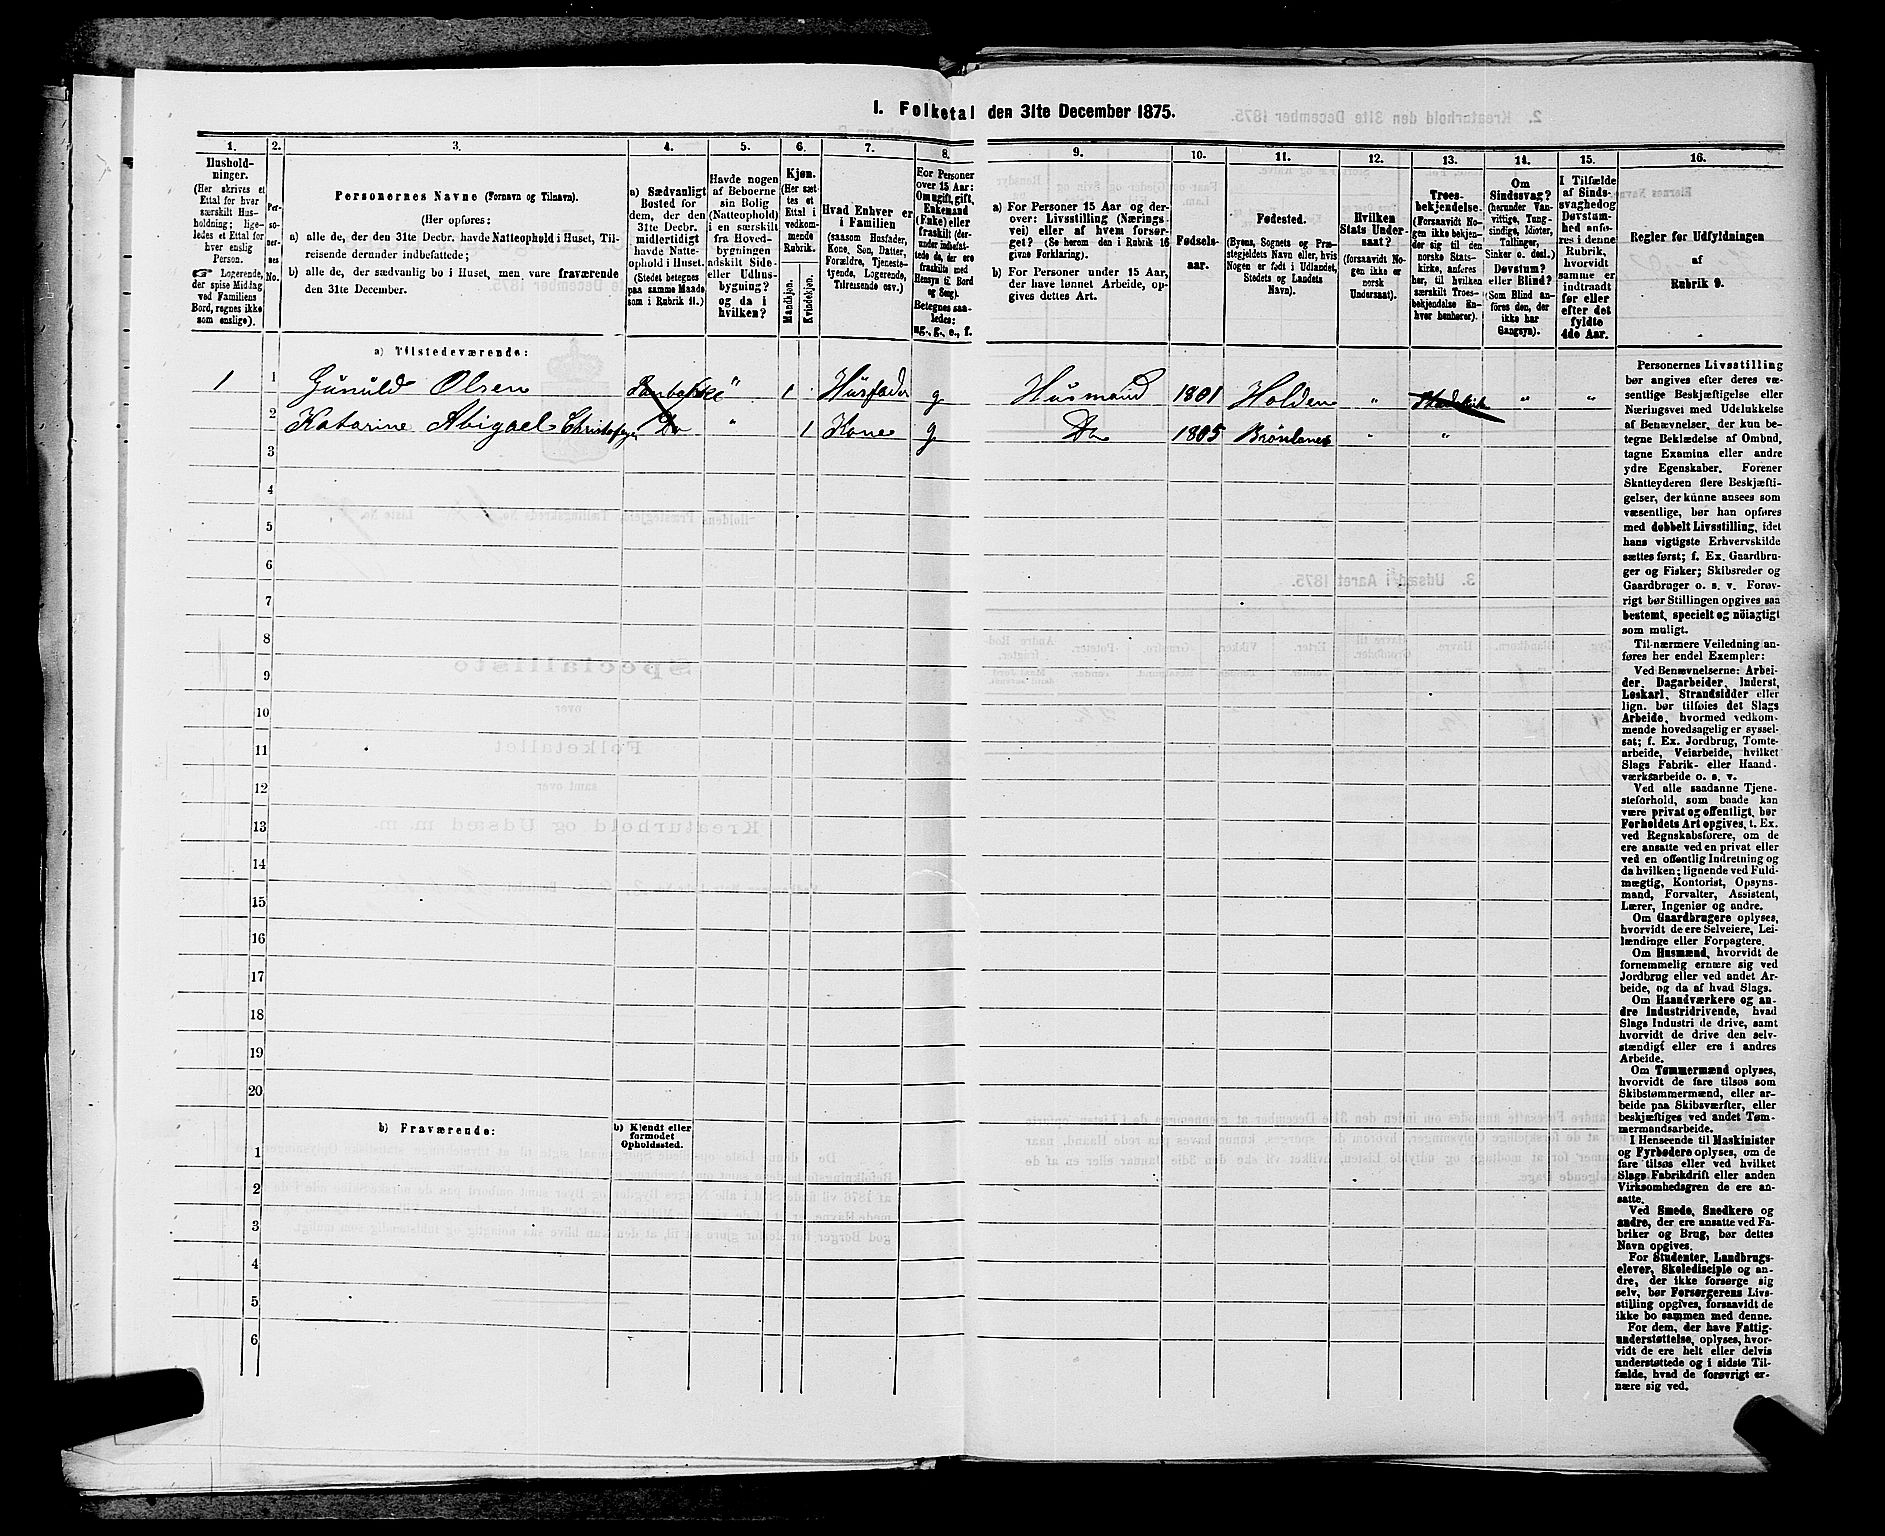 I. Folketal den 31te December 1875.
1. 2. 3. 4. 5. 6. 7. 8. 9. 10. 11. 12. 13. 14. 15. 16.
Hushold-
ninger.
(Her skrives et
Ettal for hver
særskilt Hus-
holdning; lige-
ledes et Ettal for
hver enslig
Person.
☞ Logerende,
der spise Middag
ved Familiens
Bord, regnes ikke
som enslige).
Per-
so-
ner-
nes
No.
Personernes Navne (Fornavn og Tilnavn).
(Her opføres:
a) alle de, der den 31te Decbr. havde Natteophold i Huset, Til-
reisende derunder indbefattede;
b) alle de, der sædvanlig bo i Huset, men vare fraværende
den 31te December.
a) Sædvanligt
Bosted for
dem, der den
31te Decbr.
midlertidigt
havde Natte-
ophold i Huset.
(Stedet betegnes
paa samme Maade
som i Rubrik 11.)
Havde nogen
af Beboerne
sin Bolig
(Natteophold)
i en særskilt
fra Hoved-
bygningen
adskilt Side-
eller Udhus-
bygning?
og da i
hvilken?
Kjøn.
(Her sæt-
tes et
Ettal i
vedkom-
mende
Rubrik.
Mandkjøn.
Kvindekjøn.
Hvad Enhver er
i Familien
(saasom Husfader,
Kone, Søn, Datter,
Forældre, Tjeneste-
tyende, Logerende,
Tilreisende osv.)
For Personer
over 15 Aar:
Om ugift, gift,
Enkemand
(Enke) eller
fraskilt (der-
under indbefat-
tede de, der ere
fraskilte med
Hensyn til Bord
og Seng).
Betegnes saa-
ledes:
ug., g., e., f.
a) For Personer 15 Aar og der-
over: Livsstilling (Nærings-
vei) eller af hvem forsør-
get? (Se herom den i Rubrik 16
givne Forklaring).
b) For Personer under 15 Aar,
der have lønnet Arbeide, op-
gives dettes Art.
Fødsels-
aar.
Fødested.
(Byens, Sognets og Præ-
stegjeldets Navn eller, hvis
Nogen er født i Udlandet,
Stedets og Landets
Navn).
Hvilken
Stats Under-
saat?
(forsaavidt No-
gen ikke er
norsk
Undersaat).
Troes-
bekjendelse.
(Forsaavidt No-
gen ikke bekjen-
der sig til den
norske Stats-
kirke, anføres
her, til hvilken
særskilt Troes-
bekjendelse En-
hver henhører).
Om
Sindssvag?
(herunder Van-
vittige, Tung-
sindige, Idioter,
Tullinger,
Sinker o. desl.)
Døvstum?
eller Blind?
(Som Blind an-
føres den, der
ikke har
Gangsyn).
I Tilfælde
af Sinds-
svaghed og
Døvstum-
hed anfø-
res i denne
Rubrik,
hvorvidt
samme er
indtraadt
før eller
efter det
fyldte
4de Aar.
Regler for Udfyldningen
af
Rubrik 9.
a) Tilstedeværende:
1 1 Gunuld Olsen " 1 Husfader g Husmand 1801 Holden " " "
2 Katarine Abigael Do " 1 Kone g Do 1805 " "
3
4
5
6
7
8
9
10
11
12
13
14
15
16
17
18
19
20
b) Fraværende:
b) Kjendt eller
formodet
Opholdssted.
1
2
3
4
5
6
Personernes Livsstilling
bør angives efter deres væ-
sentlige Beskjæftigelse eller
Næringsvei med Udelukkelse
af Benævnelser, der kun be-
tegne Beklædelse af Ombud,
tagne Examina eller andre
ydre Egenskaber. Forener
Skatteyderen flere Beskjæfti-
gelser, der kunne ansees som
væsentlige, bør han opføres
med dobbelt Livsstilling, idet
hans vigtigste Erhvervskilde
sættes først; f. Ex. Gaardbru-
ger og Fisker; Skibsreder og
Gaardbruger o. s. v. Forøv-
rigt bør Stillingen opgives saa
bestemt, specielt og nöiagtigt
som muligt.
Til nærmere Veiledning an-
føres her endel Exempler:
Ved Benævnelserne: Arbei-
der, Dagarbeider, Inderst,
Løskarl, Strandsidder eller
lign. bør tilføies det Slags
Arbeide, hvormed vedkom-
mende hovedsagelig er syssel-
sat; f. Ex. Jordbrug, Tomte-
arbeide, Veiarbeide, hvilket
Slags Fabrik- eller Haand-
værksarbeide o. s. v.
Ved alle saadanne Tjene-
steforhold, som baade kan
være privat og offentligt, bør
Forholdets Art opgives, t. Ex.
ved Regnskabsførere, om de
ere ansatte ved en privat eller
ved en offentlig Indretning og
da hvilken; lignende ved Fuld-
mægtig, Kontorist, Opsyns-
mand, Forvalter, Assistent,
Lærer, Ingeniør og andre.
Om Gaardbrugere oplyses,
hvorvidt de ere Selveiere, Lei-
lændinge eller Forpagtere.
Om Husmænd, hvorvidt de
fornemmelig ernære sig ved
Jordbrug eller ved andet Ar-
beide, og da af hvad Slags.
Om Haandværkere og an-
dre Industridrivende, hvad
Slags Industri de drive, samt
hvorvidt de drive den selv-
stændigt eller ere i andres
Arbeide.
Om Tømmermænd oplyses,
hvorvidt de fare tilsøs som
Skibstømmermænd, eller ar-
beide paa Skibsværfter, eller
beskjæftiges ved andet Tøm-
mermandsarbeide.
I Henseende til Maskinister
og Fyrbødere oplyses, om de
fare tilsøs eller ved hvilket
Slags Fabrikdrift eller anden
Virksomhedsgren de ere an-
satte.
Ved Smede, Snedkere og
andre, der ere ansatte ved Fa-
briker og Brug, bør dettes
Navn opgives.
For Studenter, Landbrugs-
elever, Skoledisciple og an-
dre, der ikke forsørge sig
selv, bør Forsørgerens Livs-
stilling opgives, forsaavidt de
ikke bo sammen med denne.
For dem, der have Fattig-
understøttelse, oplyses, hvor-
vidt de ere helt eller delvis
understøttede og i sidste Til-
fælde, hvad de forøvrigt er-
nære sig ved.